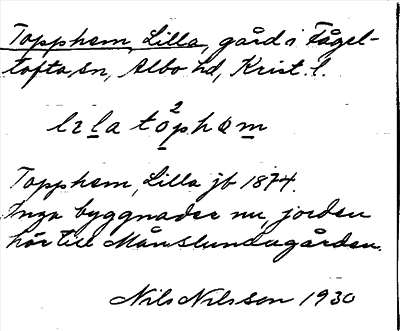 Topphem, Lilla, gård i Fågel-
tofta sn, Albo hd, Krist. l.
lɩla tò²phæm
Topphem, Lilla jb 1874.
Inga byggnader nu, jorden
hör till Månslundagården.
Nils Nilsson 1930